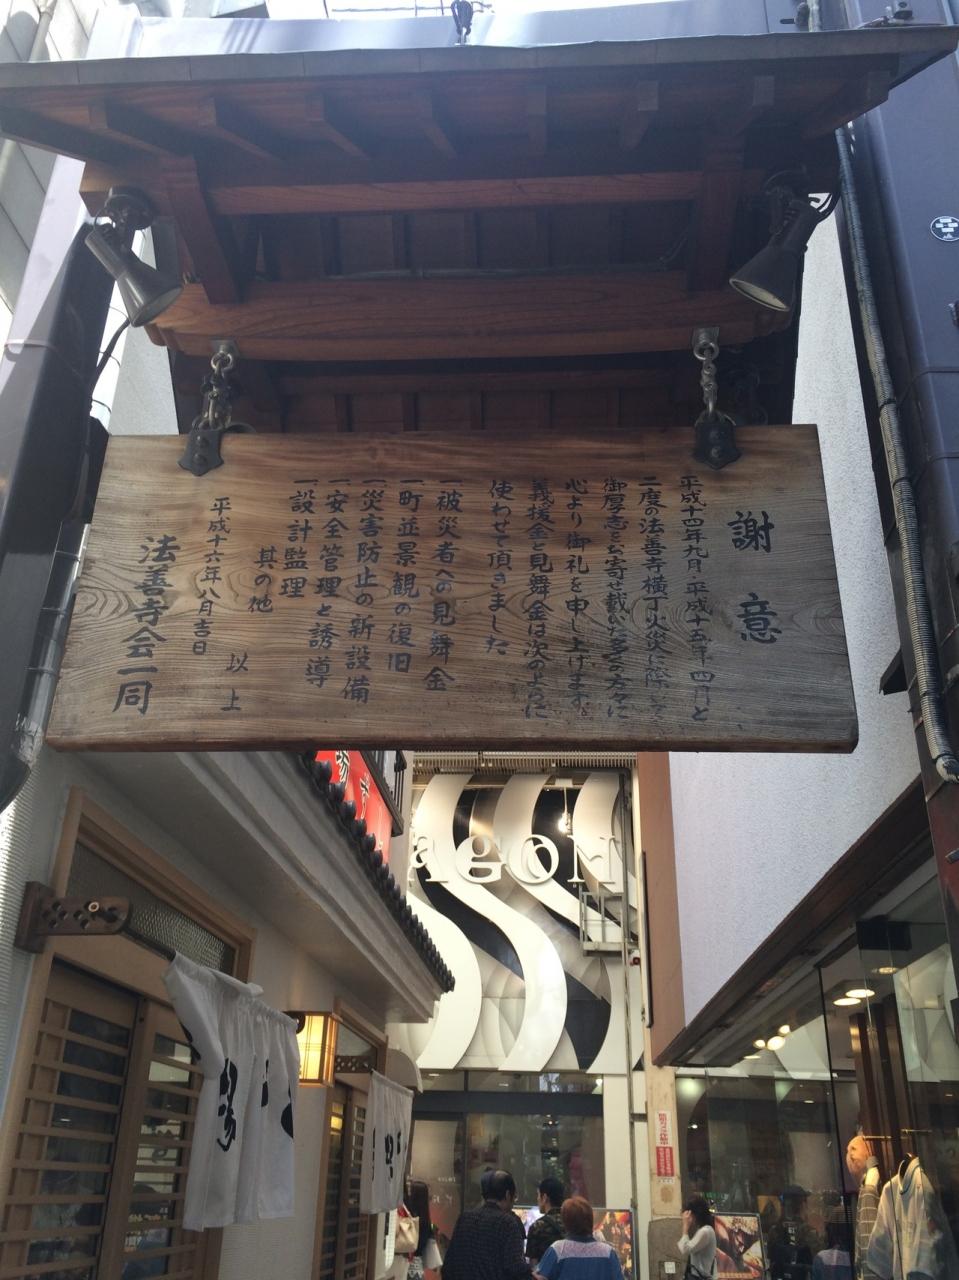 謝意
平成十四年九月・平成十五年四月と
二度の法善寺横丁火災に際し
御厚志をお寄せ戴いた多くの方々に
心より御礼を申し上げます。
義援金と見舞金は次のように
使わせて頂きました
一被災者への見舞金
一町並景観の復旧
一災害防止の新設備
一安全管理と誘導
一設計監理
其の他
以上
平成十六年八月吉日
法善寺会一同
agON